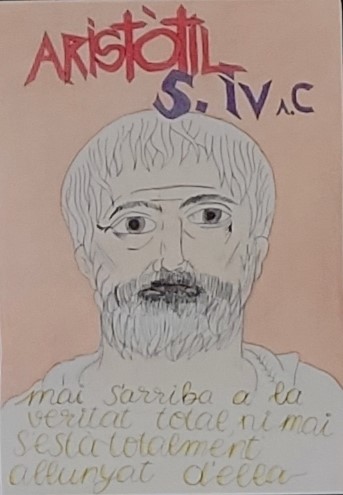 ARISTÒTIL
S. IV A.C
mai s'arriba a la
veritat total, ni mai
s'està totalment
allunyat d'ella